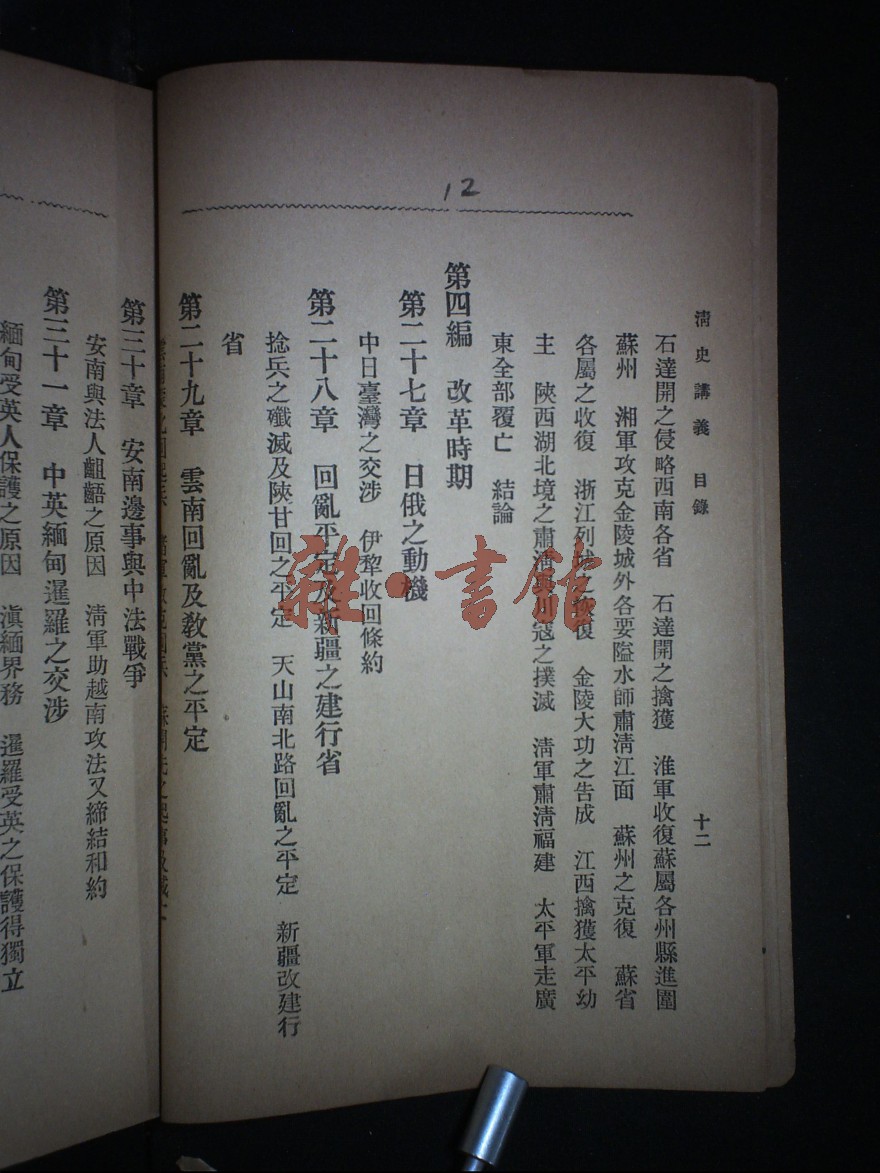 12
清史講義 目錄 十二
石達開之侵略西南各省 石達開之擒獲 淮軍收復蘇屬各州縣進圍
蘇州 湘軍攻克金陵城外各要隘水師肅清江面 蘇州之克復 蘇省
各屬之收復 浙江列城之恢復 金陵大功之告成 江西擒獲太平幼
主 陝西湖北境之肅清與川寇之撲滅 清軍肅清福建 太平軍走廣
東全部覆亡 結論
第四編 改革時期
第二十七章 日俄之動機
中日臺灣之交涉 伊犂收回條約
第二十八章 回亂平定及新疆之建行省
捻兵之殲滅及陝甘回之平定 天山南北路回亂之平定 新疆改建行
省
第二十九章 雲南回亂及教黨之平定
第三十章 安南邊事與中法戰爭
安南與法人齟齬之原因 清軍助越南攻法又締結和約
第三十一章 中英緬甸暹羅之交涉
緬甸受英人保護之原因 滇緬界務 暹羅受英之保護得獨立
雜·書館